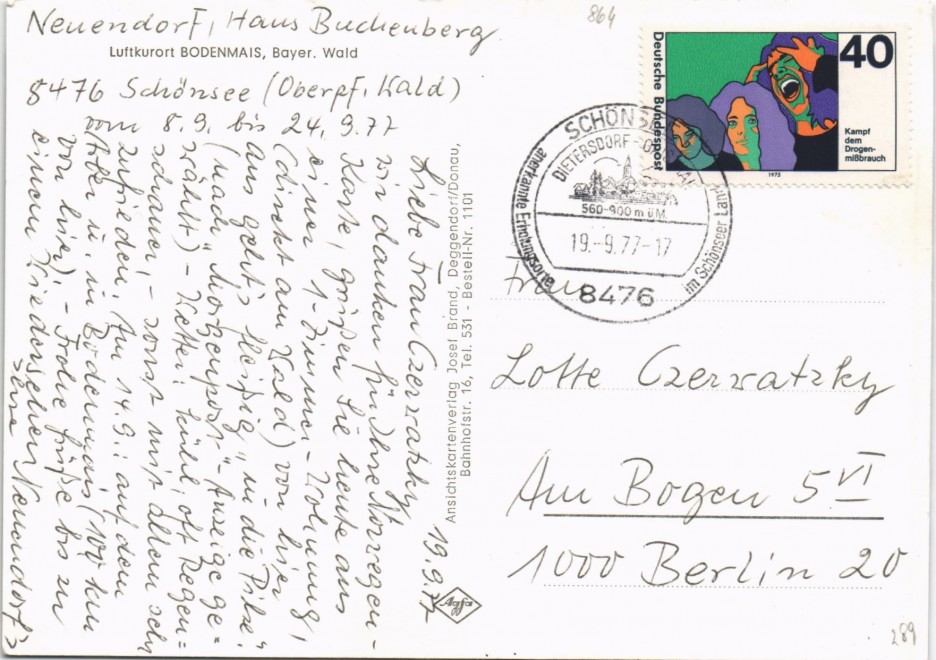 Neuendorf, Haus Buchenberg
Luftkurort BODENMAIS, Bayer. Wald
8476 Schönsee (Oberpf. Wald)
vom 8.9. bis 24.9.77
19.9.77
Liebe Frau Czerwatzky,
wir danken für Ihre Norwegen-
Karte, grüßen Sie heute aus
einer 1-Zimmer-Wohnung,
(direkt am Wald) von hier
aus geht's fleißig "in die Pilze"
(nach "Morgenpost"-Anzeige ge=
wählt) - Wetter: kühl, oft Regen=
schauer, - sonst mit allem sehr
zufrieden. Am 14.9. auf dem
Arber u. in Bodenmais (100 km
von hier). - Frohe Grüße bis zu
einem Wiedersehen
Neuendorf's
Ansichtskartenverlag Josef Brand, Deggendorf/Donau,
Bahnhofstr. 16, Tel. 531 - Bestell-Nr. 1101
Agfa
864
Deutsche Bundespost
40
Kampf
dem
Drogen-
mißbrauch
1975
SCHÖNSEE
DIETERSDORF
560-900 m ü.M.
19.-9.77-17
anerkannte Erholungsorte
im Schönseer Land
8476
Frau
Lotte Czerwatzky
Am Bogen 5 VI
1000 Berlin 20
289